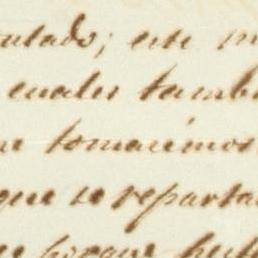 ultado; este m
cuales tambi
tomaremos
que se reparta
porque